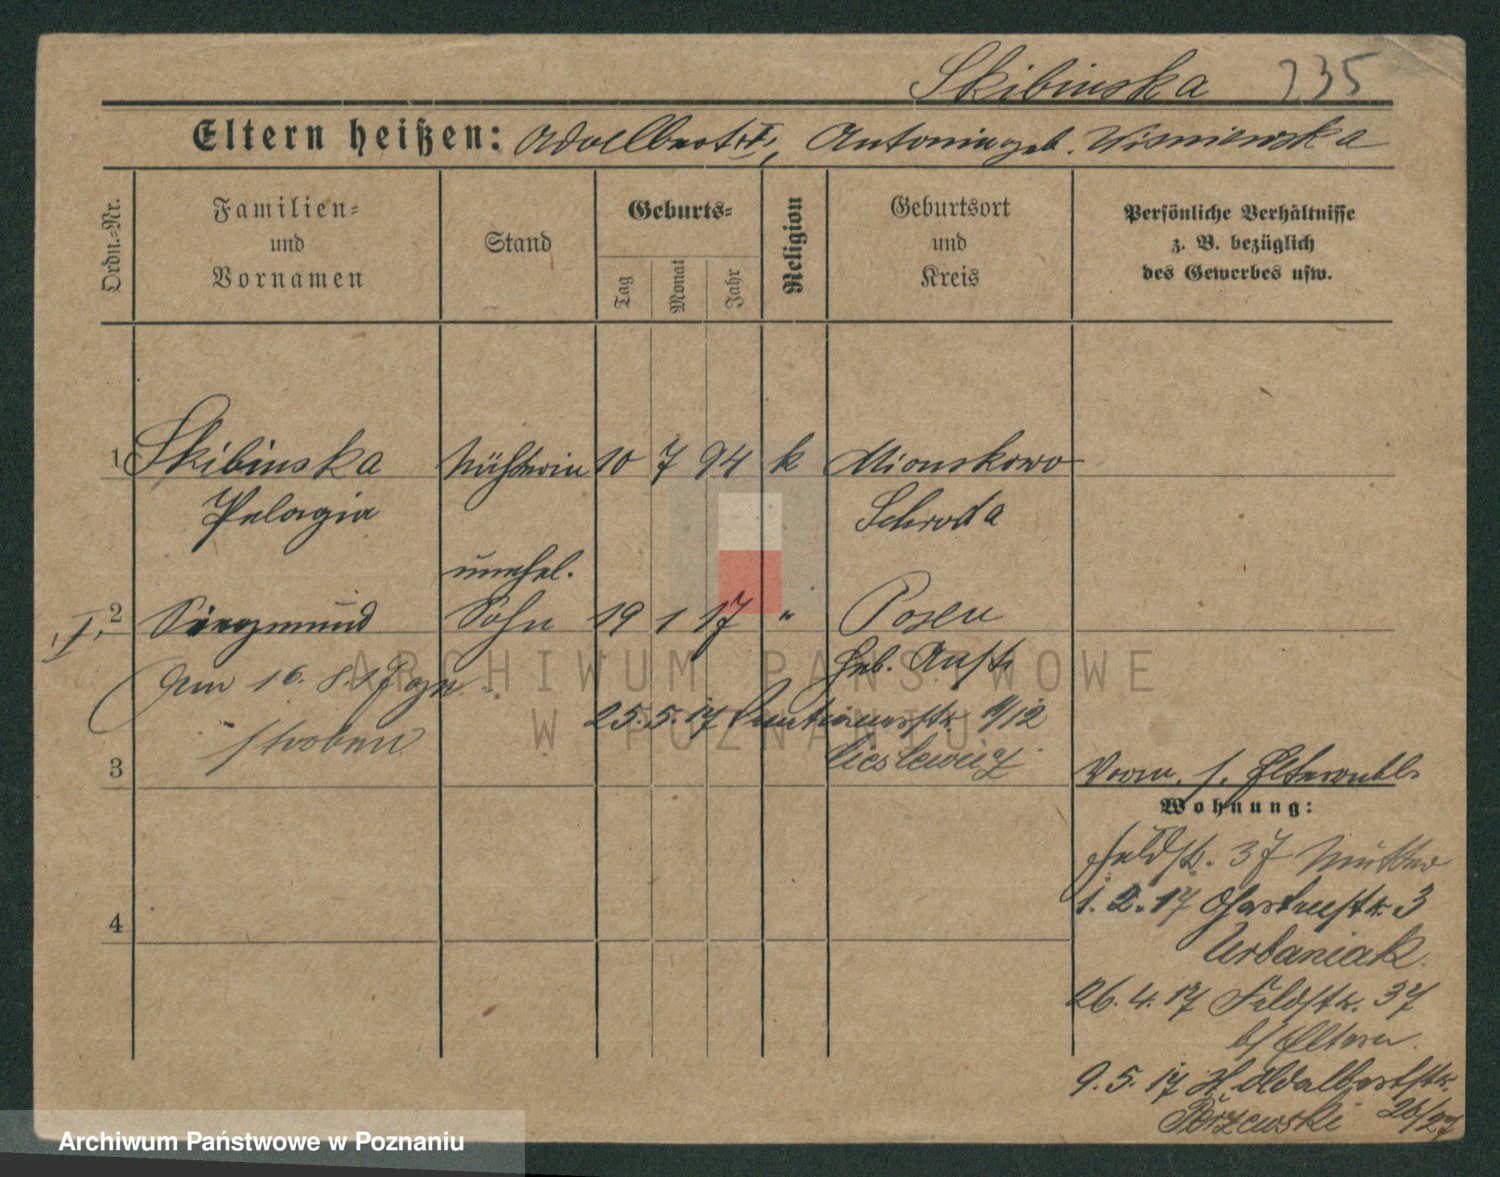 Skibinska 235
Eltern heißen: Adelbert, Antonina geb. Wisniewska
Ordn.-Nr.
Familien-
und
Vornamen
Stand
Geburts-
Tag
Monat
Jahr
Religion
Geburtsort
und
Kreis
Persönliche Verhältnisse
z. B. bezüglich
des Gewerbes usw.
1 Skibinska Näherin 10 7 94 k Mionskowo
Pelagia Schroda
unehel.
2 Siegmund Sohn 19 1 17 " Posen
Geb. Anst.
Am 16. 8. 17 ge-
storben
25. 5. 17 4/12
Cieslewicz
3
Vorm. s. Elternbl.
Wohnung:
Feldstr. 37 Mutter
1. 2. 17 3
Urbaniak
26. 4. 17 Feldstr. 37
b/ Eltern.
4
9. 5. 17 St. Adalbertstr.
26/27
ARCHIWUM PAŃSTWOWE
W POZNANIU
Archiwum Państwowe w Poznaniu